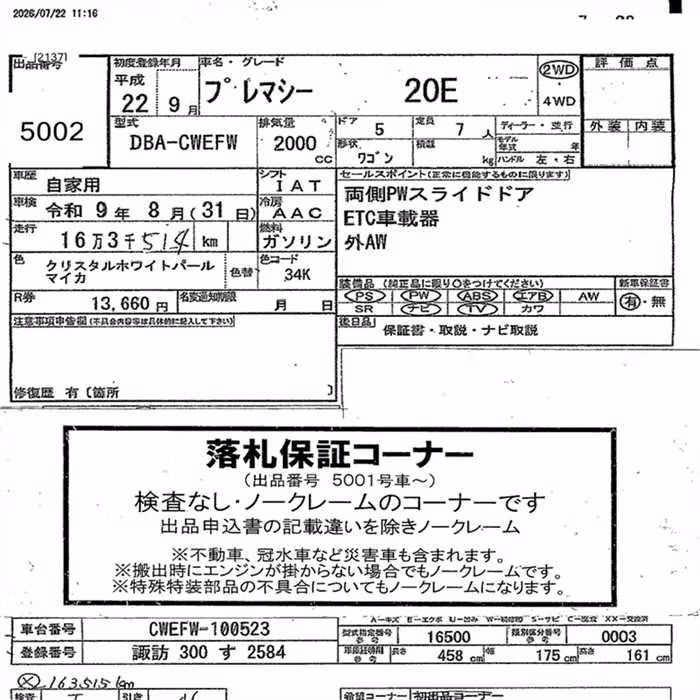 2026/07/22 11:16
[2137]
出品番号
5002
初度登録年月
平成
22 9月
車名・グレード
プレマシー 20E
2WD
4WD
評価点
外装 内装
型式
DBA-CWEFW
排気量
2000
cc
ドア
5
定員
7 人
形状
ワゴン
積載
kg
ディーラー・並行
モデル年式 年
ハンドル 左・右
車歴
自家用
シフト
IAT
車検
令和 9年 8月(31日)
冷房
AAC
走行
16万3千514 km
燃料
ガソリン
色
クリスタルホワイトパール
マイカ
色替
色コード
34K
R券
13,660円
名変通知期限
月 日
セールスポイント(正常に機能するものに限ります)
両側PWスライドドア
ETC車載器
外AW
装備品(純正品に限り○をつけてください)
PS PW ABS エアB AW
SR ナビ TV カワ
新車保証書
有・無
後日品
保証書・取説・ナビ取説
注意事項申告欄(不具合内容等は具体的に記入して下さい)
修復歴 有〔箇所 〕
落札保証コーナー
(出品番号 5001号車～)
検査なし・ノークレームのコーナーです
出品申込書の記載違いを除きノークレーム
※不動車、冠水車など災害車も含まれます。
※搬出時にエンジンが掛からない場合でもノークレームです。
※特殊特装部品の不具合についてもノークレームになります。
車台番号
CWEFW-100523
登録番号
諏訪 300 す 2584
型式指定番号
参考
16500
類別区分番号
参考
0003
長さ
458 cm
幅
175 cm
高さ
161 cm
163515km
検査
引き
希望コーナー
初出品コーナー